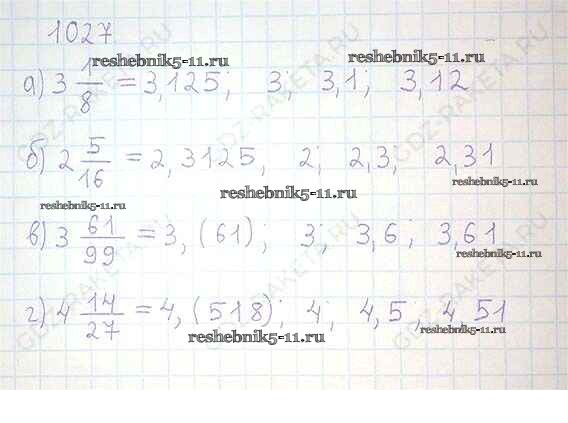 1027
reshebnik5-11.ru
reshebnik5-11.ru
а) 3 1/8 = 3,125; 3; 3,1; 3,12
б) 2 5/16 = 2,3125, 2; 2,3, 2,31
reshebnik5-11.ru
reshebnik5-11.ru
reshebnik5-11.ru
в) 3 61/99 = 3,(61); 3; 3,6; 3,61
reshebnik5-11.ru
г) 4 14/27 = 4,(518); 4; 4,5; 4,51
reshebnik5-11.ru
reshebnik5-11.ru
GDZ-RAKETA.RU